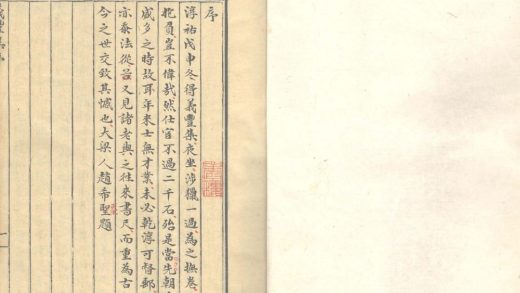 序
淳祐戊申冬得義豐集夜坐涉獵一過為之撫卷
抱負豈不偉哉然仕官不過二千石殆是當先朝
盛多之時故耳年來士無才業未必乾淳可督郵
亦忝法從

又見諸老與之往來書尺而重為古
今之世交致其憾也大梁人趙希聖題